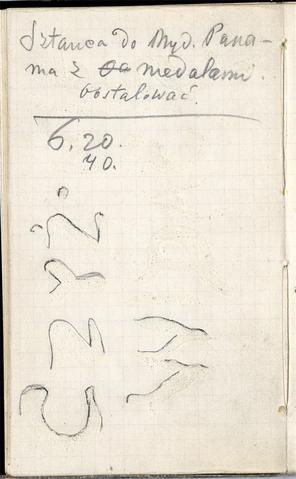 Sztanca do Myd. Pana-
ma z medalami.
Obstalować.
6.20.
40.